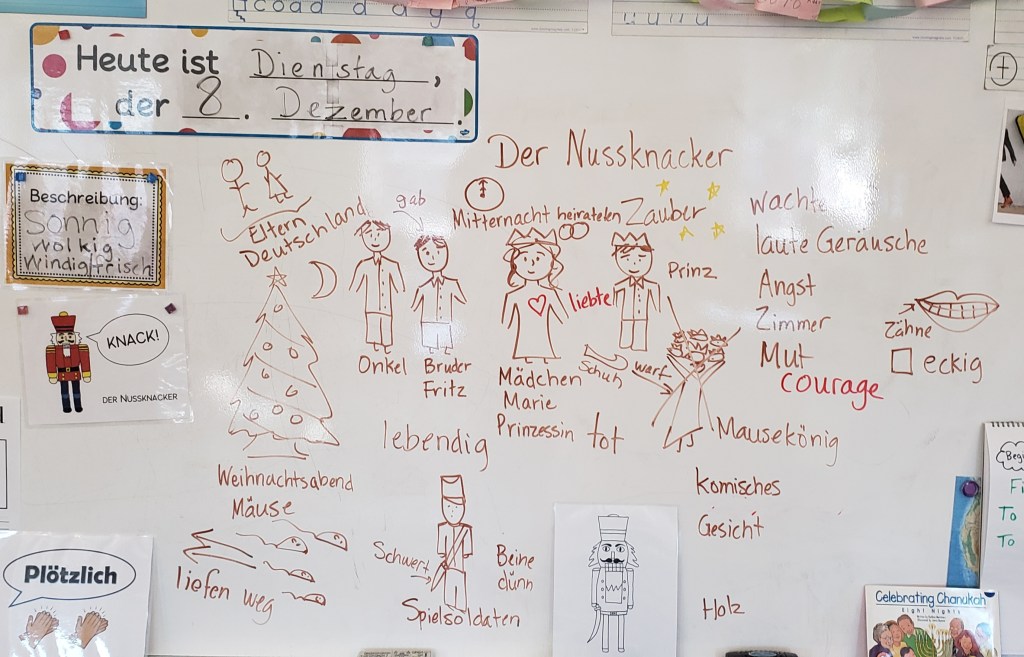 coad d a g q
Heute ist Dienstag,
der 8. Dezember.
Beschreibung:
Sonnig
wolkig
windig frisch
KNACK!
DER NUSSKNACKER
Plötzlich
Der Nussknacker
Eltern
Deutschland
gab
Mitternacht heiratelen Zauber
Onkel
Bruder
Fritz
liebte
Prinz
Mädchen
Marie
Prinzessin
Schuh
warf
tot
Mausekönig
lebendig
Weihnachtsabend
Mäuse
liefen weg
Schwert
Beine
dünn
Spielsoldaten
wachte
laute Geräusche
Angst
Zimmer
Mut
courage
Zähne
eckig
komisches
Gesicht
Holz
Celebrating Chanukah
Eight Nights
To
To